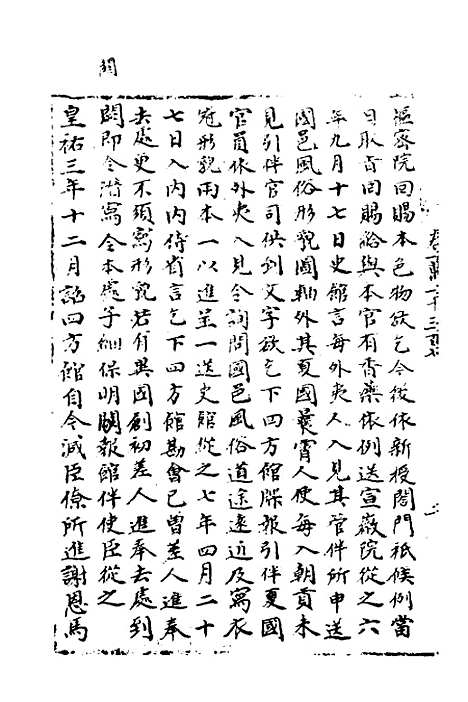 樞密院回賜本色物欲乞今後依新授閤門祗候例當
日取旨回賜詔與本官有香藥依例送宣徽院從之六
年九月十七日史館言每外夷人入見其管伴所申送
國邑風俗形貌圖軸外其夏國曩霄人使每入朝貢未
見引伴官司供到文字欲乞下四方館牒報引伴夏國
官員依外夷入見令詢問國邑風俗道途遠近及寫衣
冠形貌兩本一以進呈一送史館從之七年四月二十
七日入內內侍省言乞下四方館勘會已曾差人進奉
去處更不須寫形貌若有異國創初差人進奉去處到
闕即令潛寫令本處子細保明關報館伴使臣從之
皇祐三年十二月詔四方館自今減臣僚所進謝恩馬